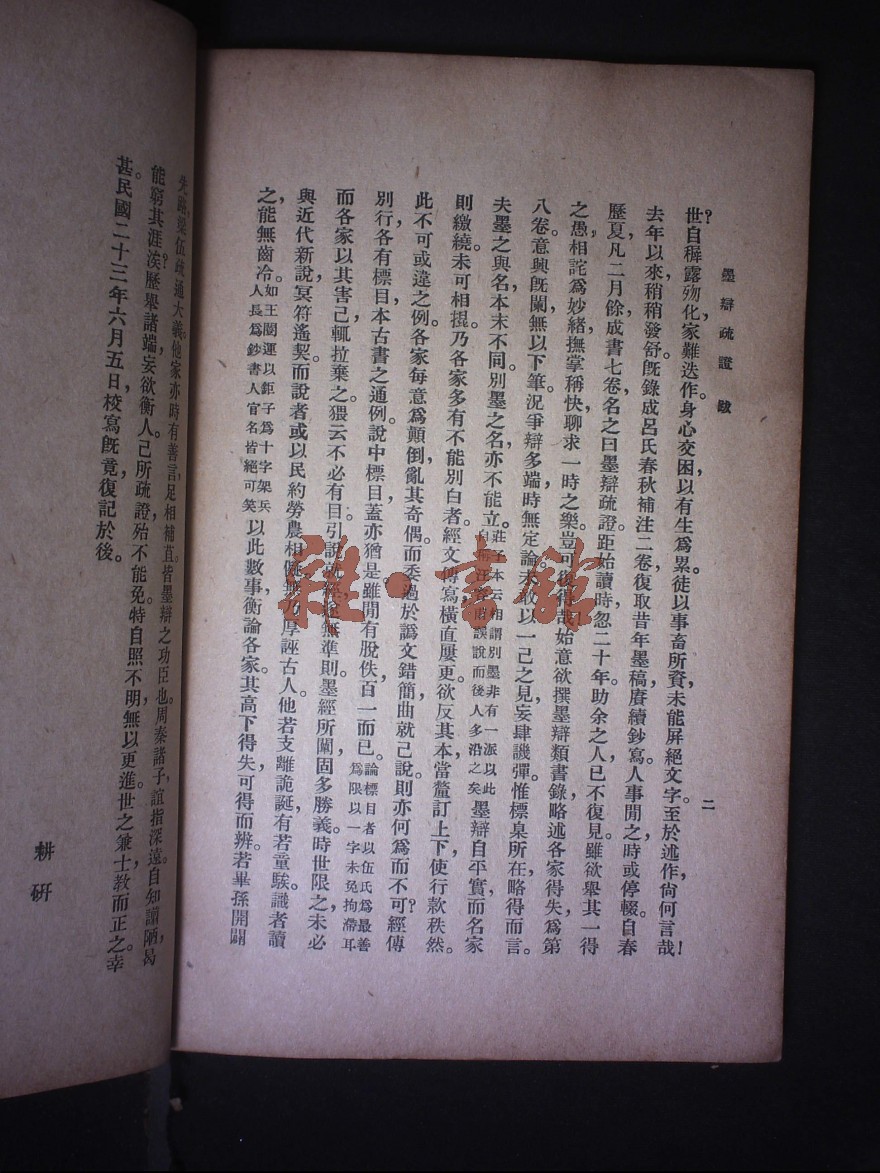 墨辯疏證　跋
二
世？自穉露歾化，家難迭作，身心交困，以有生爲累。徒以事畜所資，未能屏絕文字，至於述作，尙何言哉！
去年以來，稍稍發舒，旣錄成呂氏春秋補注二卷，復取昔年墨稿，賡續鈔寫。人事閒之，時或停輟。自春
歷夏，凡二月餘，成書七卷，名之曰墨辯疏證。距始讀時，忽二十年，助余之人，已不復見。雖欲舉其一得
之愚，相詫爲妙緒，撫掌稱快，聊求一時之樂，豈可復得哉！始意欲撰墨辯類書錄，略述各家得失，爲第
八卷。意興旣闌，無以下筆。況爭辯多端，時無定論，未敢以一己之見，妄肆譏彈。惟標臬所在，略得而言。
夫墨之與名，本末不同。別墨之名，亦不能立。莊子本云相謂別墨非有一派以此
說而後人多沿之矣墨辯自平實，而名家
則繳繞，未可相掍。乃各家多有不能別白者。經文傳寫，橫直屢更，欲反其本，當釐訂上下，使行款秩然。
此不可或違之例。各家每意爲顛倒，亂其奇偶，而委過於譌文錯簡，曲就己說，則亦何爲而不可？經傳
別行，各有標目，本古書之通例。說中標目，蓋亦猶是。雖閒有脫佚，百一而已。論標目者以伍氏爲最善
爲限以一字未免拘滯耳
而各家以其害己，輒拉棄之，猥云不必有目，引說就經，遂無準則。墨經所闡，固多勝義，時世限之，未必
與近代新說，冥符遙契。而說者或以民約勞農相儗，無乃厚誣古人。他若支離詭誕，有若童騃，識者讀
之，能無齒冷。如王闓運以鉅子爲十字架兵
人長爲鈔書人官名皆絕可笑以此數事，衡論各家，其高下得失，可得而辨。若畢孫開闢
先路，梁伍疏通大義，他家亦時有善言，足相補苴，皆墨辯之功臣也。周秦諸子，誼指深遠。自知謭陋，曷
能窮其涯涘？歷舉諸端，妄欲衡人，己所疏證，殆不能免。特自照不明，無以更進。世之兼士，教而正之，幸
甚。民國二十三年六月五日，校寫旣竟，復記於後。
耕硏
雜·書館